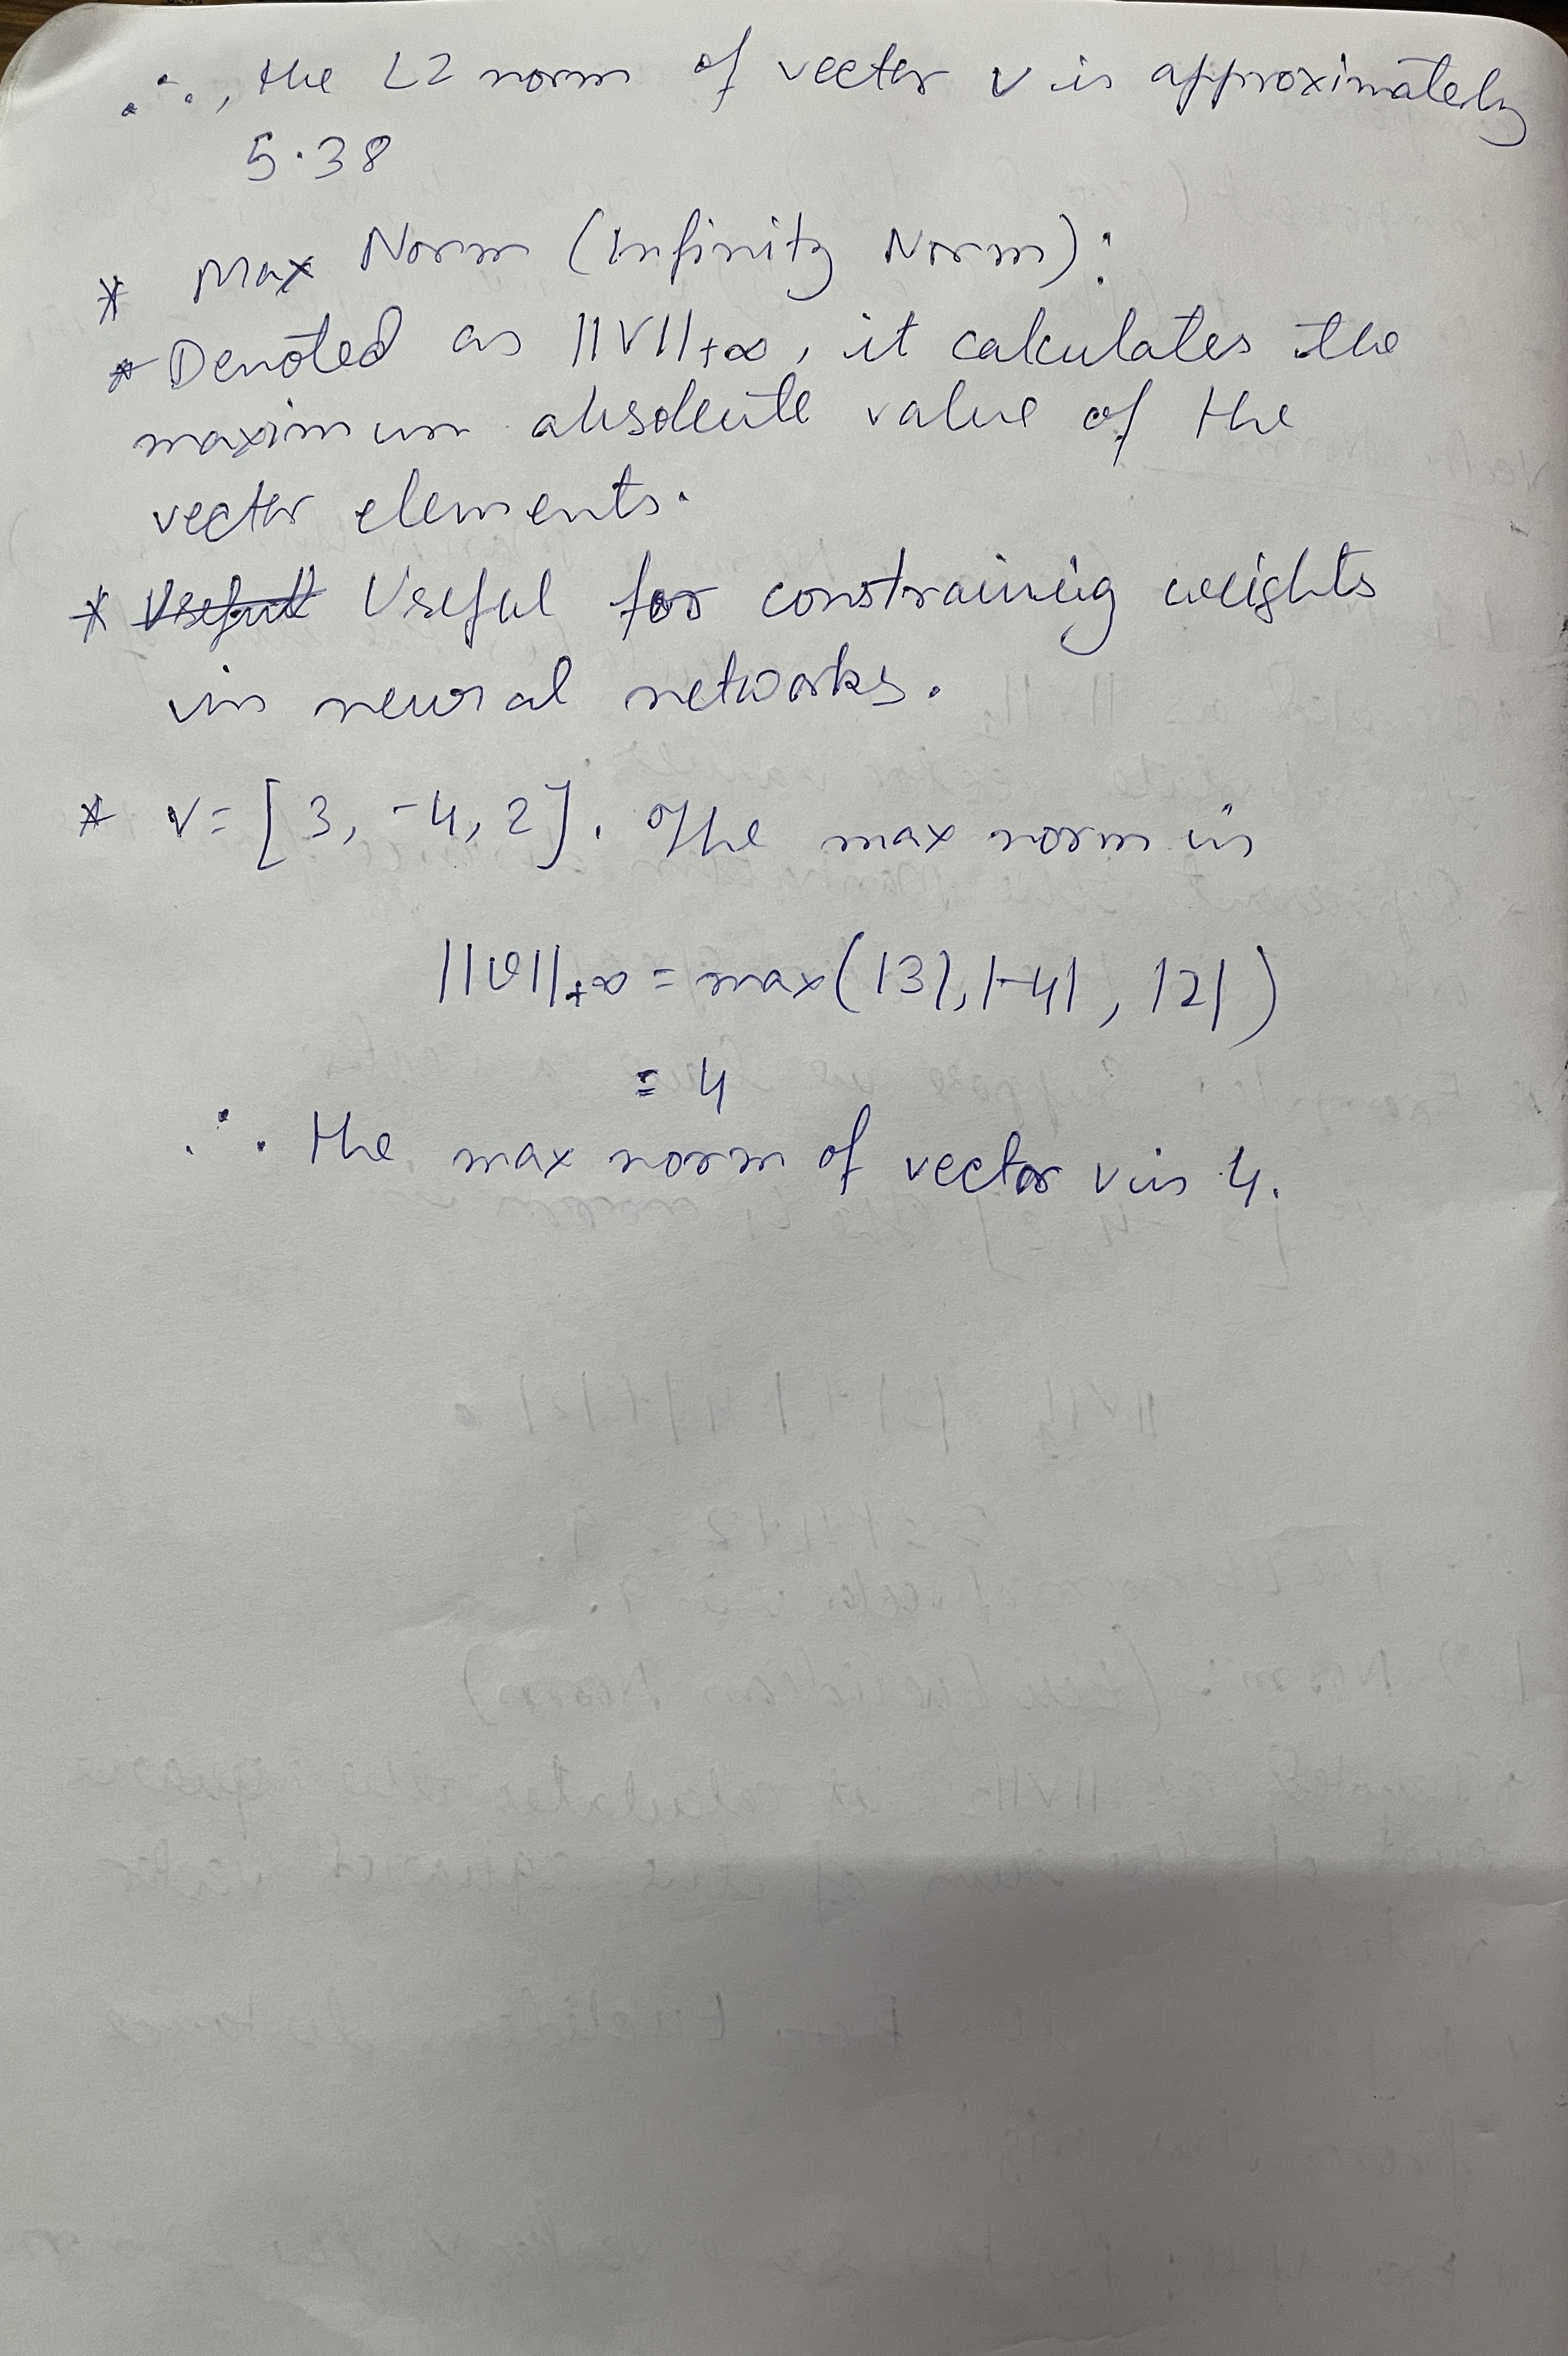 ∴, the L2 norm of vector v is approximately
5.38
* Max Norm (Infinity Norm):
* Denoted as ||V||+∞, it calculates the
maximum absolute value of the
vector elements.
* Useful Useful for constraining weights
in neural networks.
* v = [3, -4, 2]. The max norm is
||v||+∞ = max(|3|, |-4|, |2|)
= 4
∴ the max norm of vector v is 4.